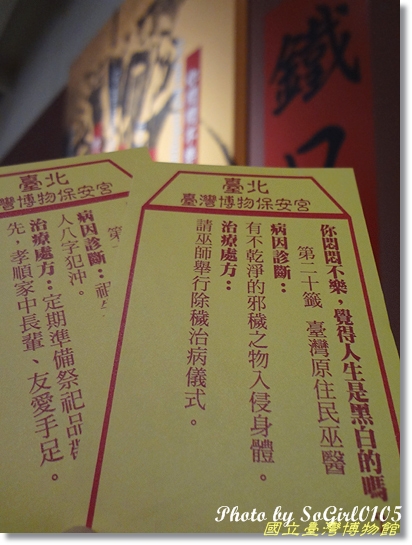 臺北
臺灣博物保安宮
你悶悶不樂，覺得人生是黑白的嗎
第二十籤 臺灣原住民巫醫
病因診斷：
有不乾淨的邪穢之物入侵身體。
治療處方：
請巫師舉行除穢治病儀式。
臺北
灣博物保安宮
第
病因診斷：祀
人八字犯沖。
治療處方：定期準備祭祀品
先，孝順家中長輩、友愛手足。
鐵口
Photo by SoGirl0105
國立臺灣博物館